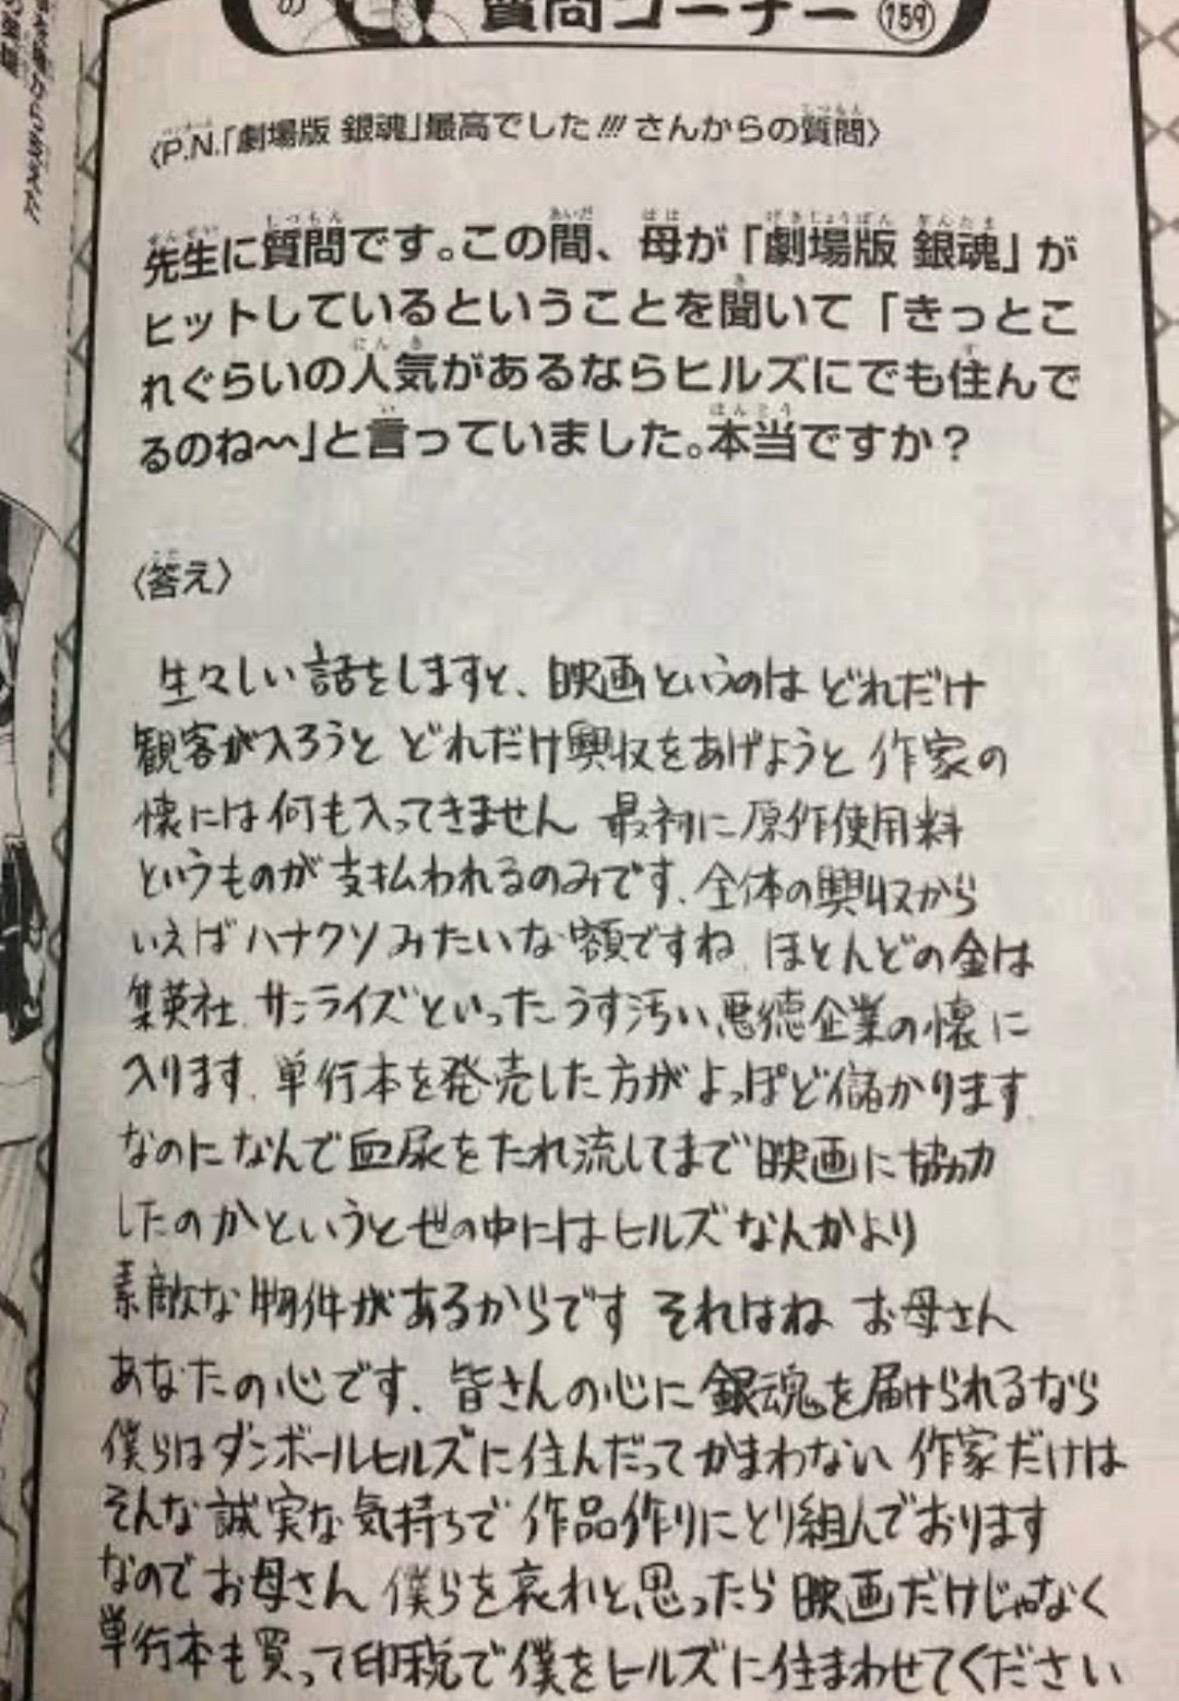 の
質問コーナー 159
〈P.N.「劇場版 銀魂」最高でした!!! さんからの質問〉
先生に質問です。この間、母が「劇場版 銀魂」が
ヒットしているということを聞いて「きっとこ
れぐらいの人気があるならヒルズにでも住んで
るのね〜〜」と言っていました。本当ですか？
〈答え〉
生々しい話をしますと、映画というのは どれだけ
観客が入ろうと どれだけ興収をあげようと 作家の
懐には何も入ってきません 最初に原作使用料
というものが支払われるのみです、全体の興収から
いえばハナクソみたいな額ですね、ほとんどの金は
集英社、サンライズといったうす汚い悪徳企業の懐に
入ります、単行本を発売した方がよっぽど儲かります、
なのになんで血尿をたれ流してまで映画に協力
したのかというと世の中にはヒルズなんかより
素敵な物件があるからです それはね お母さん
あなたの心です、皆さんの心に銀魂を届けられるなら
僕らはダンボールヒルズに住んだってかまわない 作家だけは
そんな誠実な気持ちで作品作りにとり組んでおります
なのでお母さん 僕らを哀れと思ったら映画だけじゃなく
単行本も買って印税で僕をヒルズに住まわせてください